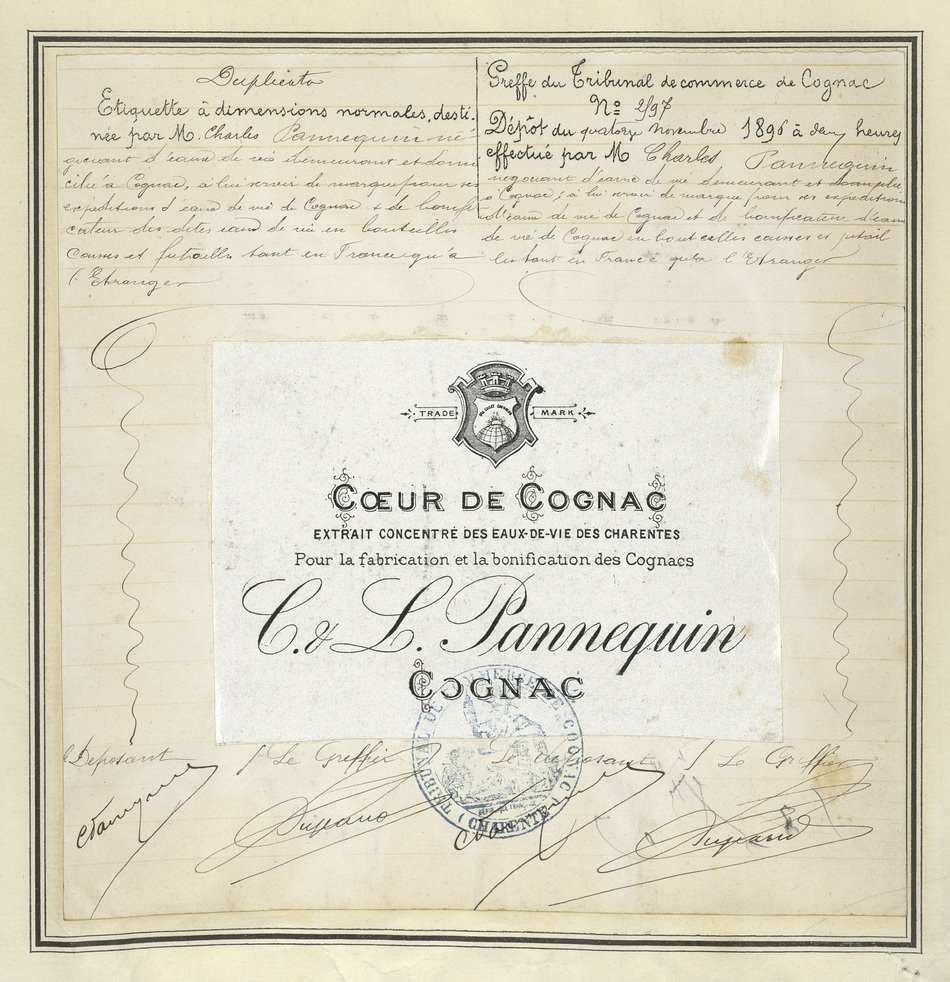 Duplicata
Etiquette à dimensions normales, desti-
née par M. Charles Pannequin né-
gociant d'eaux de vie demeurant et domi
cilié à Cognac, à lui servir de marque pour ses
expéditions d'eaux de vie de Cognac & de bonifi
cateur des dites eaux de vie en bouteilles
caisses et futailles tant en France qu'à
l'Etranger
Greffe du Tribunal de commerce de Cognac
Nº 2/97
Dépôt du quatorze novembre 1896 à deux heures
effectué par M Charles Pannequin
négociant d'eaux de vie demeurant et domicilié
à Cognac, à lui servir de marque pour ses expéditions
d'eaux de vie de Cognac et de bonificateur d'eaux
de vie de Cognac en bouteilles caisses et futail
les tant en France qu'à l'Etranger
TRADE MARK
CŒUR DE COGNAC
EXTRAIT CONCENTRÉ DES EAUX-DE-VIE DES CHARENTES
Pour la fabrication et la bonification des Cognacs
C. & L. Pannequin
COGNAC
TRIBUNAL DE COMMERCE DE COGNAC
(CHARENTE)
Le Deposant Le Greffier Le deposant Le Greffier